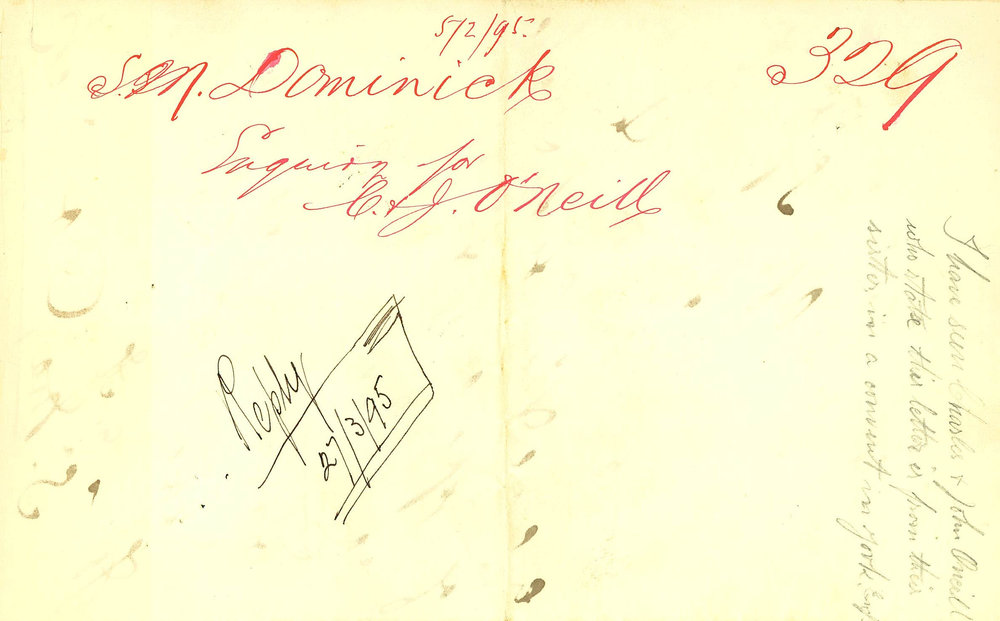 5/2/95.
S. M. Dominick
329
Enquiry for
C. & J. O'Neill
Reply
27/3/95
I have seen Charles & John Oneill
who state this letter is from their
sister, in a convent in York.